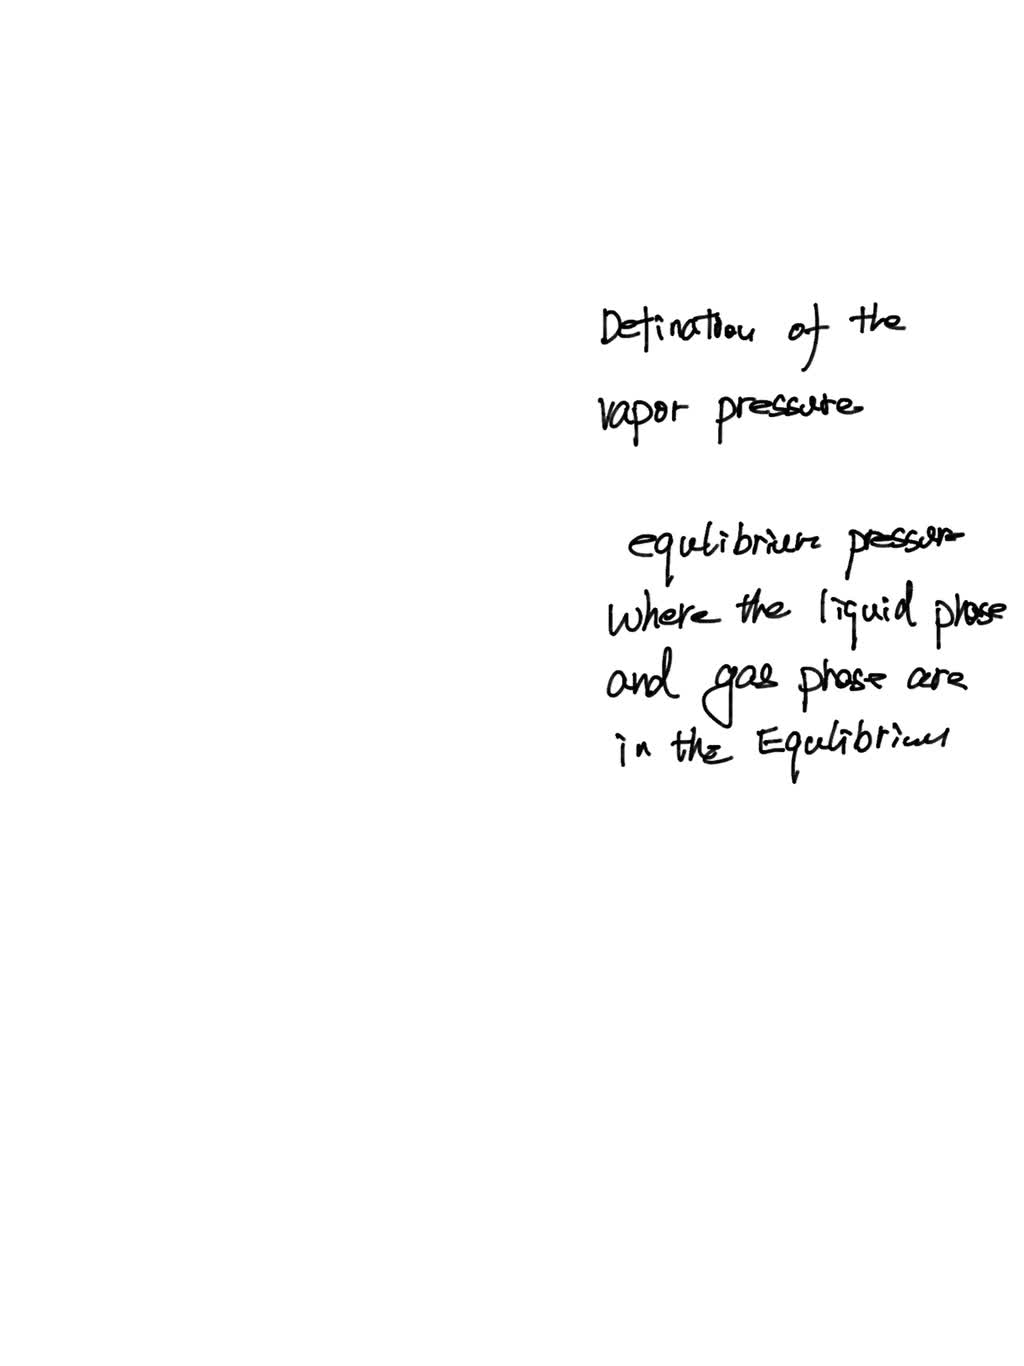 Defination of the
vapor pressure
equlibrium pressure
where the liquid phase
and gas phase are
in the Equlibrium